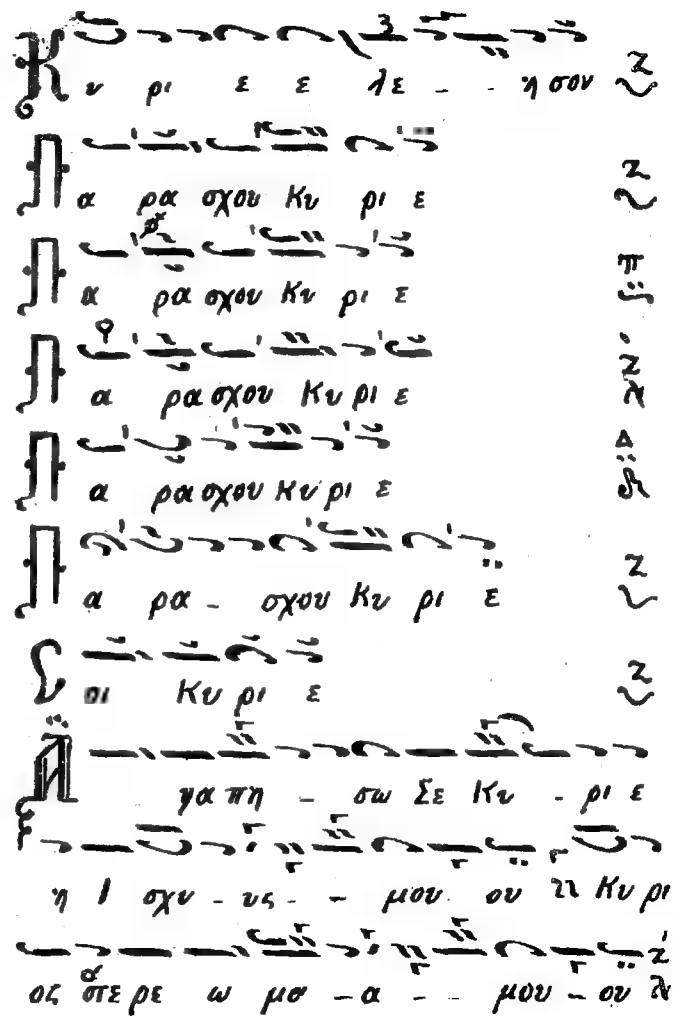 Κυ ρι ε ε λε - - η σον
Πα ρα σχου Κυ ρι ε
Πα ρα σχου Κυ ρι ε
Πα ρα σχου Κυ ρι ε
Πα ρα σχου Κυ ρι ε
Πα ρα - σχου Κυ ρι ε
Σοι Κυ ρι ε
Α γα πη - σω Σε Κυ - ρι ε
η Ι σχυ - υς - - μου ου Κυ ρι
ος στε ρε ω μα - α - - μου - ου